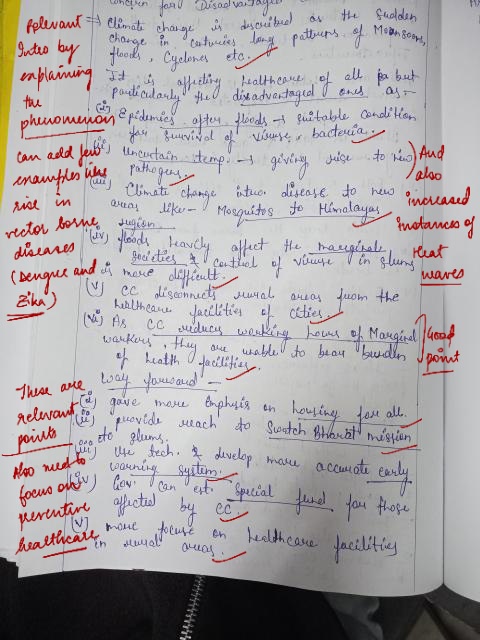 concern for Disadvantaged
Relevant
Intro by
explaining
the
phenomenon
→ Climate change is described as the sudden
change in centuries long patterns of Monsoons,
floods, Cyclones etc.
It is affecting healthcare of all pa but
particularly the disadvantaged ones as:-
(i) Epidemics after floods → suitable condition
for survival of viruses, bacteria.
(ii) Uncertain temp. → giving rise to new
pathogens.
And
also
increased
instances of
Heat
waves
can add few
examples like
rise in
vector borne
diseases
(Dengue and
Zika)
(iii) Climate change intro disease to new
areas like - Mosquitos to Himalayas
region.
(iv) floods heavily affect the marginale
societies & control of viruse in slums
is more difficult.
(v) CC disconnects rural areas from the
healthcare facilities of cities.
(vi) As CC reduces working hours of Marginal
workers, they are unable to bear burden
of health facilities.
Good
point
way forward -
These are
relevant
points
(i) gave more Emphsis on housing for all.
(ii) provide reach to Swatch Bharat mission
to slums.
(iii) use tech. & develop more accurate early
warning system.
Also need to
focus on
preventive
healthcare
(iv) Gov. can est. special fund for those
affected by CC.
(v) more focus on healthcare facilities
in rural areas.